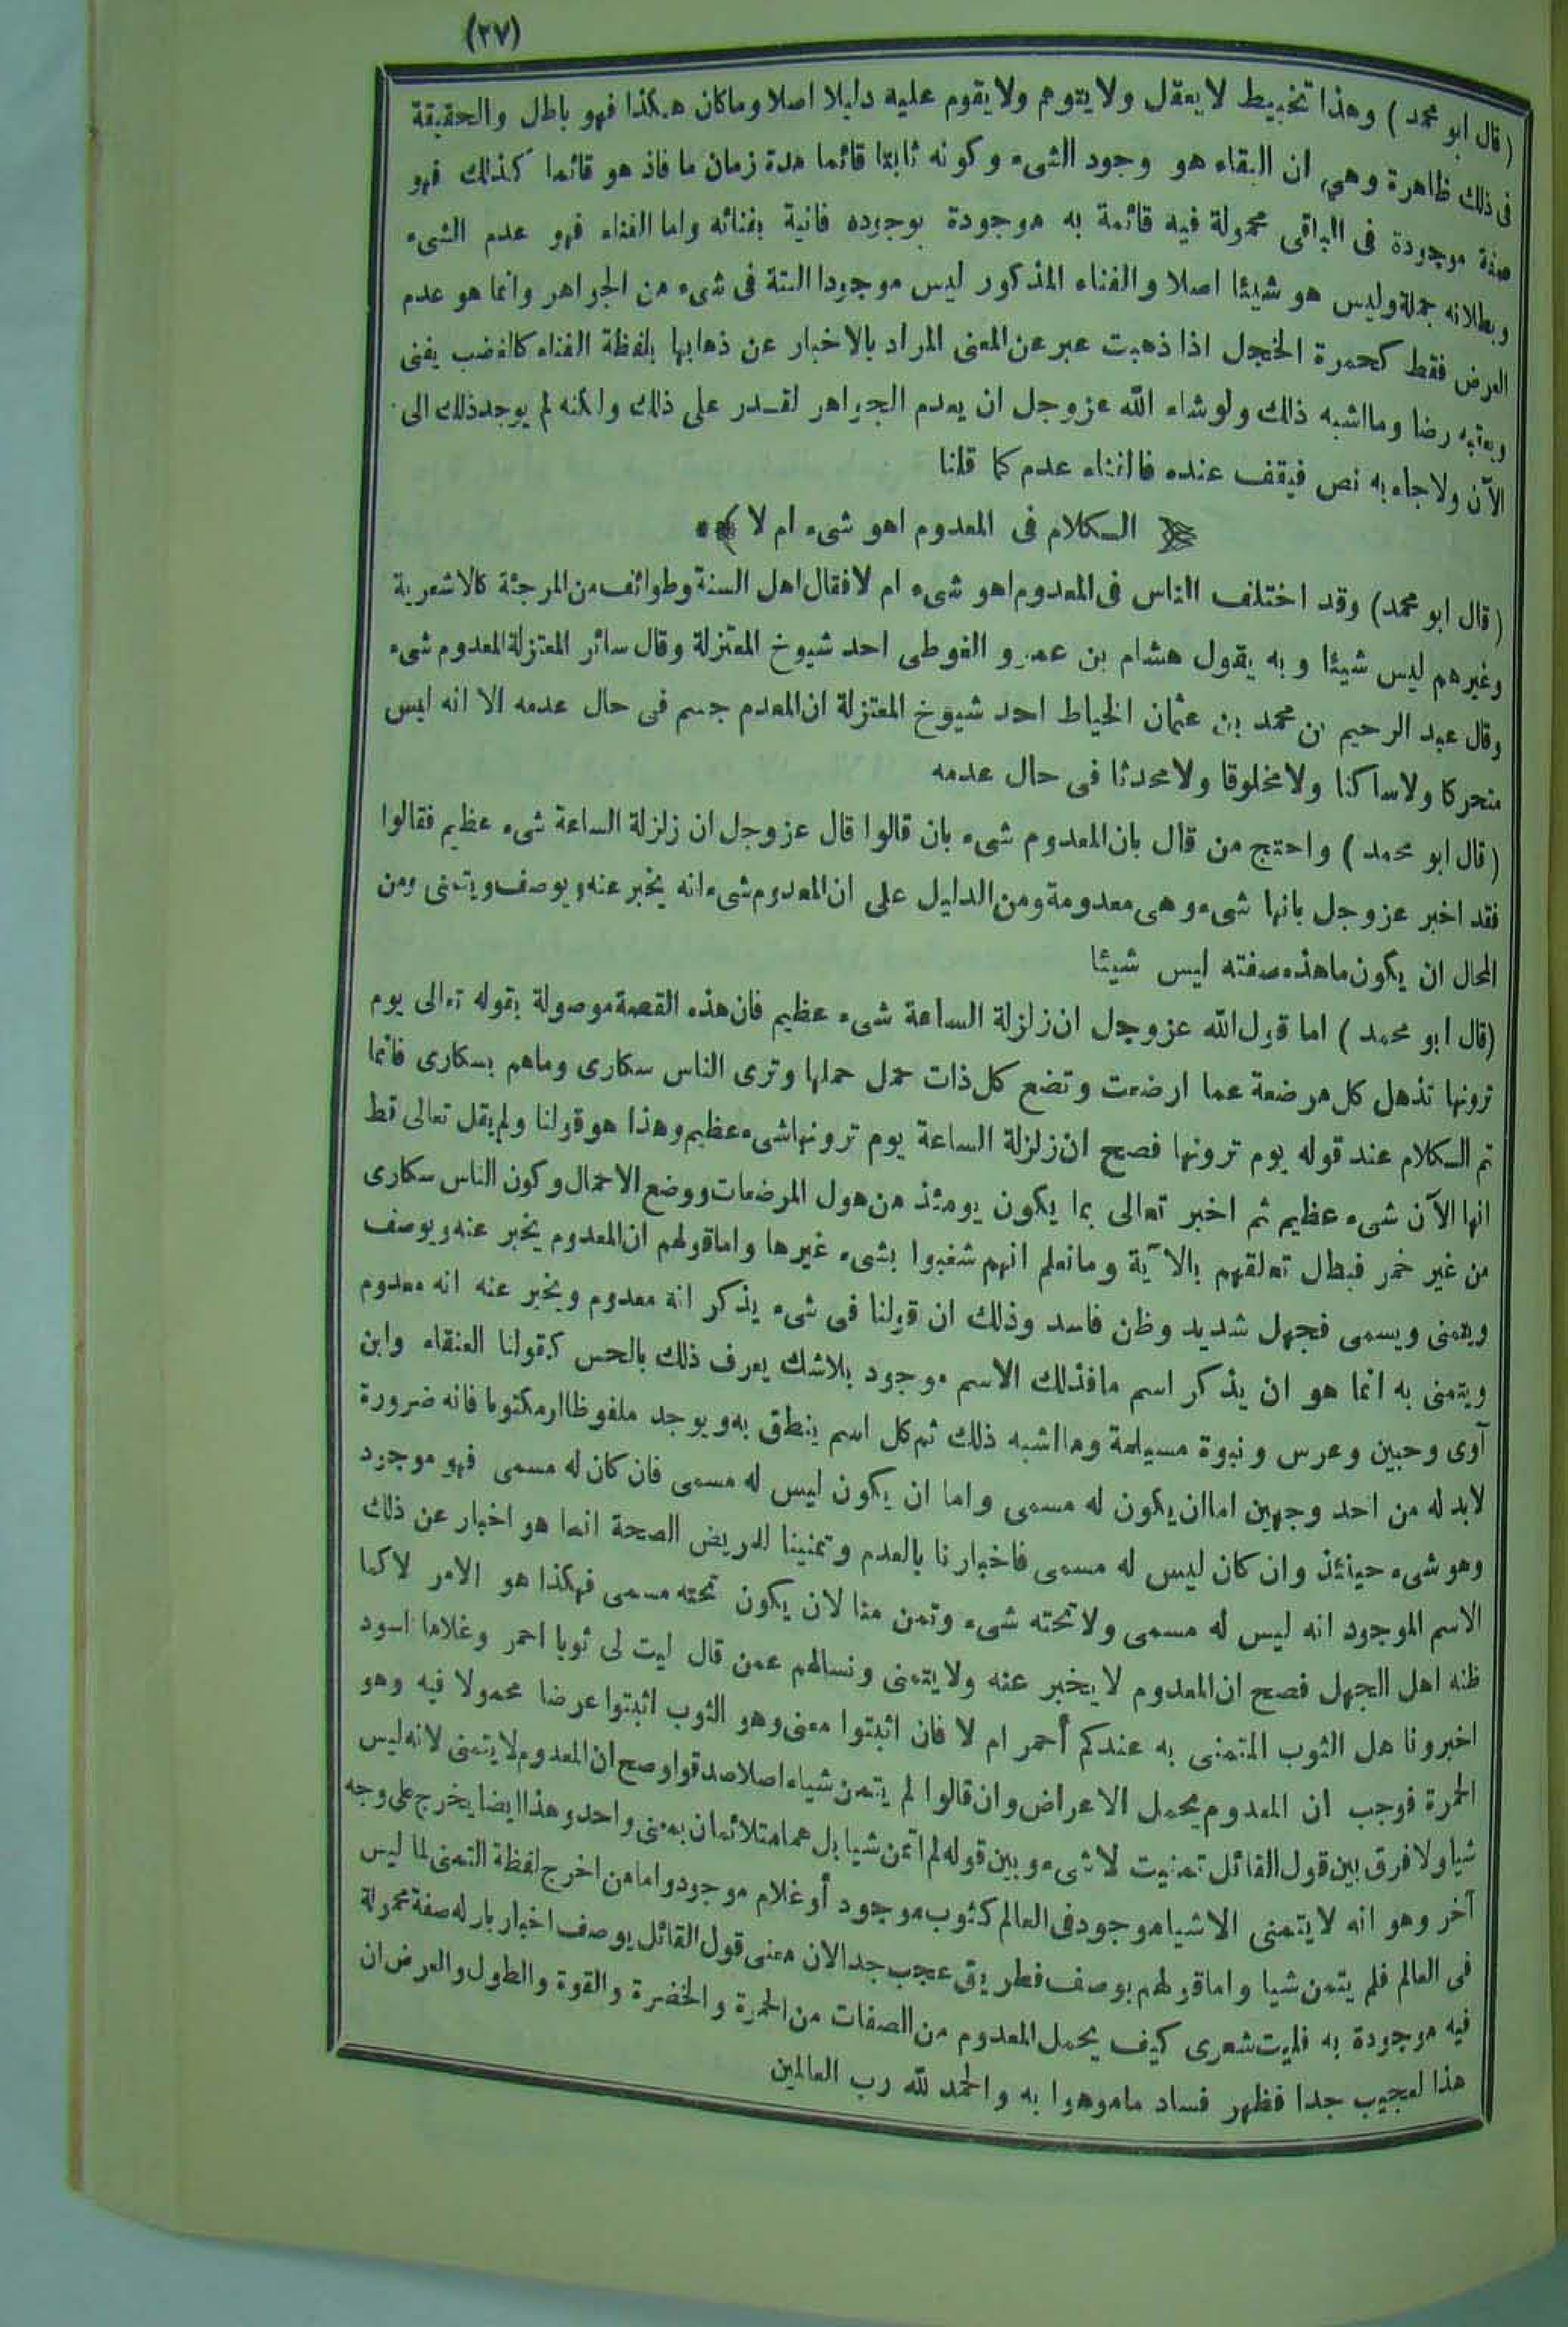 (٢٧)
(قال ابو محمد) وهذا تخبيط لا يعقل ولا يتوهم ولا يقوم عليه دليلا اصلا وما كان هكذا فهو باطل والحقيقة
فى ذلك ظاهرة وهى ان البقاء هو وجود الشىء وكونه ثابتا قائما مدة زمان ما فاذ هو قائما كذلك فهو
صفة موجودة فى الباقى محمولة فيه قائمة به موجودة بوجوده فانية بفنائه واما الفناء فهو عدم الشىء
وبطلانه جملة وليس هو شيئا اصلا والفناء المذكور ليس موجودا البتة فى شىء من الجواهر وانما هو عدم
العرض فقط كحمرة الخجل اذا ذهبت عبر عن المعنى المراد بالاخبار عن ذهابها بلفظة الفناء كالغضب يفنى
ويعقبه رضا وما اشبه ذلك ولو شاء الله عز وجل ان يعدم الجواهر لقدر على ذلك ولكنه لم يوجد ذلك الى
الآن ولا جاء به نص فيقف عنده فالفناء عدم كما قلنا
الكلام فى المعدوم اهو شىء ام لا
(قال ابو محمد) وقد اختلف الناس فى المعدوم اهو شىء ام لا فقال اهل السنة وطوائف من المرجئة كالاشعرية
وغيرهم ليس شيئا وبه يقول هشام بن عمرو الفوطى احد شيوخ المعتزلة وقال سائر المعتزلة المعدوم شىء
وقال عبد الرحيم بن محمد بن عثمان الخياط احد شيوخ المعتزلة ان المعدم جسم فى حال عدمه الا انه ليس
متحركا ولا ساكنا ولا مخلوقا ولا محدثا فى حال عدمه
(قال ابو محمد) واحتج من قال بان المعدوم شىء بان قالوا قال عز وجل ان زلزلة الساعة شىء عظيم فقالوا
فقد اخبر عز وجل بانها شىء وهى معدومة ومن الدليل على ان المعدوم شىء انه يخبر عنه ويوصف ويتمنى ومن
المحال ان يكون ما هذه صفته ليس شيئا
(قال ابو محمد) اما قول الله عز وجل ان زلزلة الساعة شىء عظيم فان هذه القصة موصولة بقوله تعالى يوم
ترونها تذهل كل مرضعة عما ارضعت وتضع كل ذات حمل حملها وترى الناس سكارى وما هم بسكارى فانما
تم الكلام عند قوله يوم ترونها فصح ان زلزلة الساعة يوم ترونها شىء عظيم وهذا هو قولنا ولم يقل تعالى قط
انها الآن شىء عظيم ثم اخبر تعالى بما يكون يومئذ من هول المرضعات ووضع الاحمال وكون الناس سكارى
من غير خمر فبطل تعلقهم بالآية وما نعلم انهم شغبوا بشىء غيرها واما قولهم ان المعدوم يخبر عنه ويوصف
ويتمنى ويسمى فجهل شديد وظن فاسد وذلك ان قولنا فى شىء يذكر انه معدوم ويخبر عنه انه معدوم
ويتمنى به انما هو ان يذكر اسم ما فذلك الاسم موجود بلاشك يعرف ذلك بالحس كقولنا العنقاء وابن
آوى وحبين وعرس ونبوة مسيلمة وما اشبه ذلك ثم كل اسم ينطق به ويوجد ملفوظا او مكتوبا فانه ضرورة
لابد له من احد وجهين اما ان يكون له مسمى واما ان يكون ليس له مسمى فان كان له مسمى فهو موجود
وهو شىء حينئذ وان كان ليس له مسمى فاخبارنا بالعدم وتمنينا للمريض الصحة انما هو اخبار عن ذلك
الاسم الموجود انه ليس له مسمى ولا تحته شىء وتمن منا لان يكون تحته مسمى فهكذا هو الامر لا كما
ظنه اهل الجهل فصح ان المعدوم لا يخبر عنه ولا يتمنى ونسالهم عمن قال ليت لى ثوبا احمر وغلاما اسود
اخبرونا هل الثوب المتمنى به عندكم أحمر ام لا فان اثبتوا معنى وهو الثوب اثبتوا عرضا محمولا فيه وهو
الحمرة فوجب ان المعدوم يحمل الاعراض وان قالوا لم يتمن شياء اصلا صدقوا وصح ان المعدوم لا يتمنى لانه ليس
شيا ولا فرق بين قول القائل تمنيت لا شىء وبين قوله لم اتمن شيا بل هما متلائمان بمعنى واحد وهذا ايضا يخرج على وجه
آخر وهو انه لا يتمنى الا شيا موجود فى العالم كثوب موجود أو غلام موجود واما من اخرج لفظة التمنى لما ليس
فى العالم فلم يتمن شيا واما قولهم يوصف فطريق عجب جدا لان معنى قول القائل يوصف اخبار بان له صفة محمولة
فيه موجودة به فليت شعرى كيف يحمل المعدوم من الصفات من الحمرة والخضرة والقوة والطول والعرض ان
هذا لعجيب جدا فظهر فساد ما موهوا به والحمد لله رب العالمين